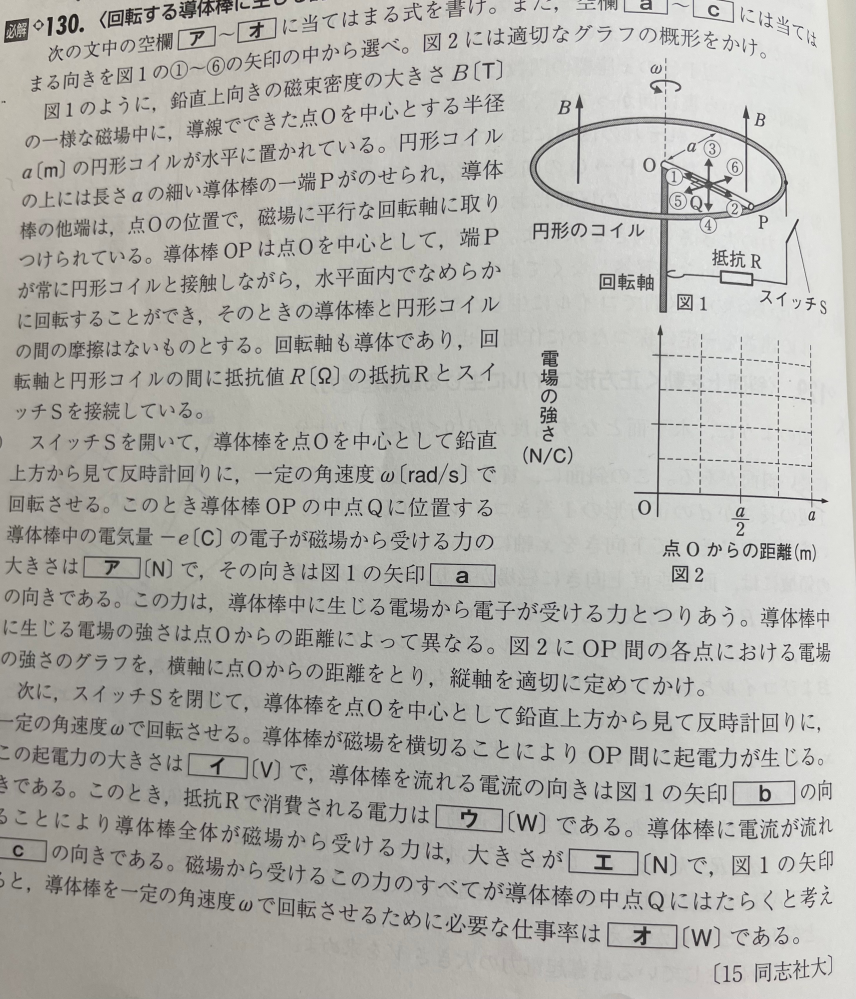 必解 130. 〈回転する導体棒に生じる
次の文中の空欄 ア ～ オ に当てはまる式を書け。また，空欄 a ～ c には当ては
まる向きを図1の①～⑥の矢印の中から選べ。図2には適切なグラフの概形をかけ。
図1のように，鉛直上向きの磁束密度の大きさ B〔T〕
の一様な磁場中に，導線でできた点Oを中心とする半径
a〔m〕の円形コイルが水平に置かれている。円形コイル
の上には長さaの細い導体棒の一端Pがのせられ，導体
棒の他端は，点Oの位置で，磁場に平行な回転軸に取り
つけられている。導体棒OPは点Oを中心として，端P
が常に円形コイルと接触しながら，水平面内でなめらか
に回転することができ，そのときの導体棒と円形コイル
の間の摩擦はないものとする。回転軸も導体であり，回
転軸と円形コイルの間に抵抗値 R〔Ω〕の抵抗Rとスイ
ッチSを接続している。
) スイッチSを開いて，導体棒を点Oを中心として鉛直
上方から見て反時計回りに，一定の角速度 ω〔rad/s〕で
回転させる。このとき導体棒OPの中点Qに位置する
導体棒中の電気量 −e〔C〕の電子が磁場から受ける力の
大きさは ア 〔N〕で，その向きは図1の矢印 a
の向きである。この力は，導体棒中に生じる電場から電子が受ける力とつりあう。導体棒中
に生じる電場の強さは点Oからの距離によって異なる。図2にOP間の各点における電場
の強さのグラフを，横軸に点Oからの距離をとり，縦軸を適切に定めてかけ。
次に，スイッチSを閉じて，導体棒を点Oを中心として鉛直上方から見て反時計回りに，
一定の角速度ωで回転させる。導体棒が磁場を横切ることによりOP間に起電力が生じる。
この起電力の大きさは イ 〔V〕で，導体棒を流れる電流の向きは図1の矢印 b の向
きである。このとき，抵抗Rで消費される電力は ウ 〔W〕である。導体棒に電流が流れ
ることにより導体棒全体が磁場から受ける力は，大きさが エ 〔N〕で，図1の矢印
c の向きである。磁場から受けるこの力のすべてが導体棒の中点Qにはたらくと考え
ると，導体棒を一定の角速度ωで回転させるために必要な仕事率は オ 〔W〕である。
〔15 同志社大〕
ω
B
B
a
O
①
②
③
④
⑤
⑥
Q
P
円形のコイル
抵抗R
回転軸
スイッチS
図1
電場の強さ
(N/C)
O
a/2
a
点Oからの距離(m)
図2